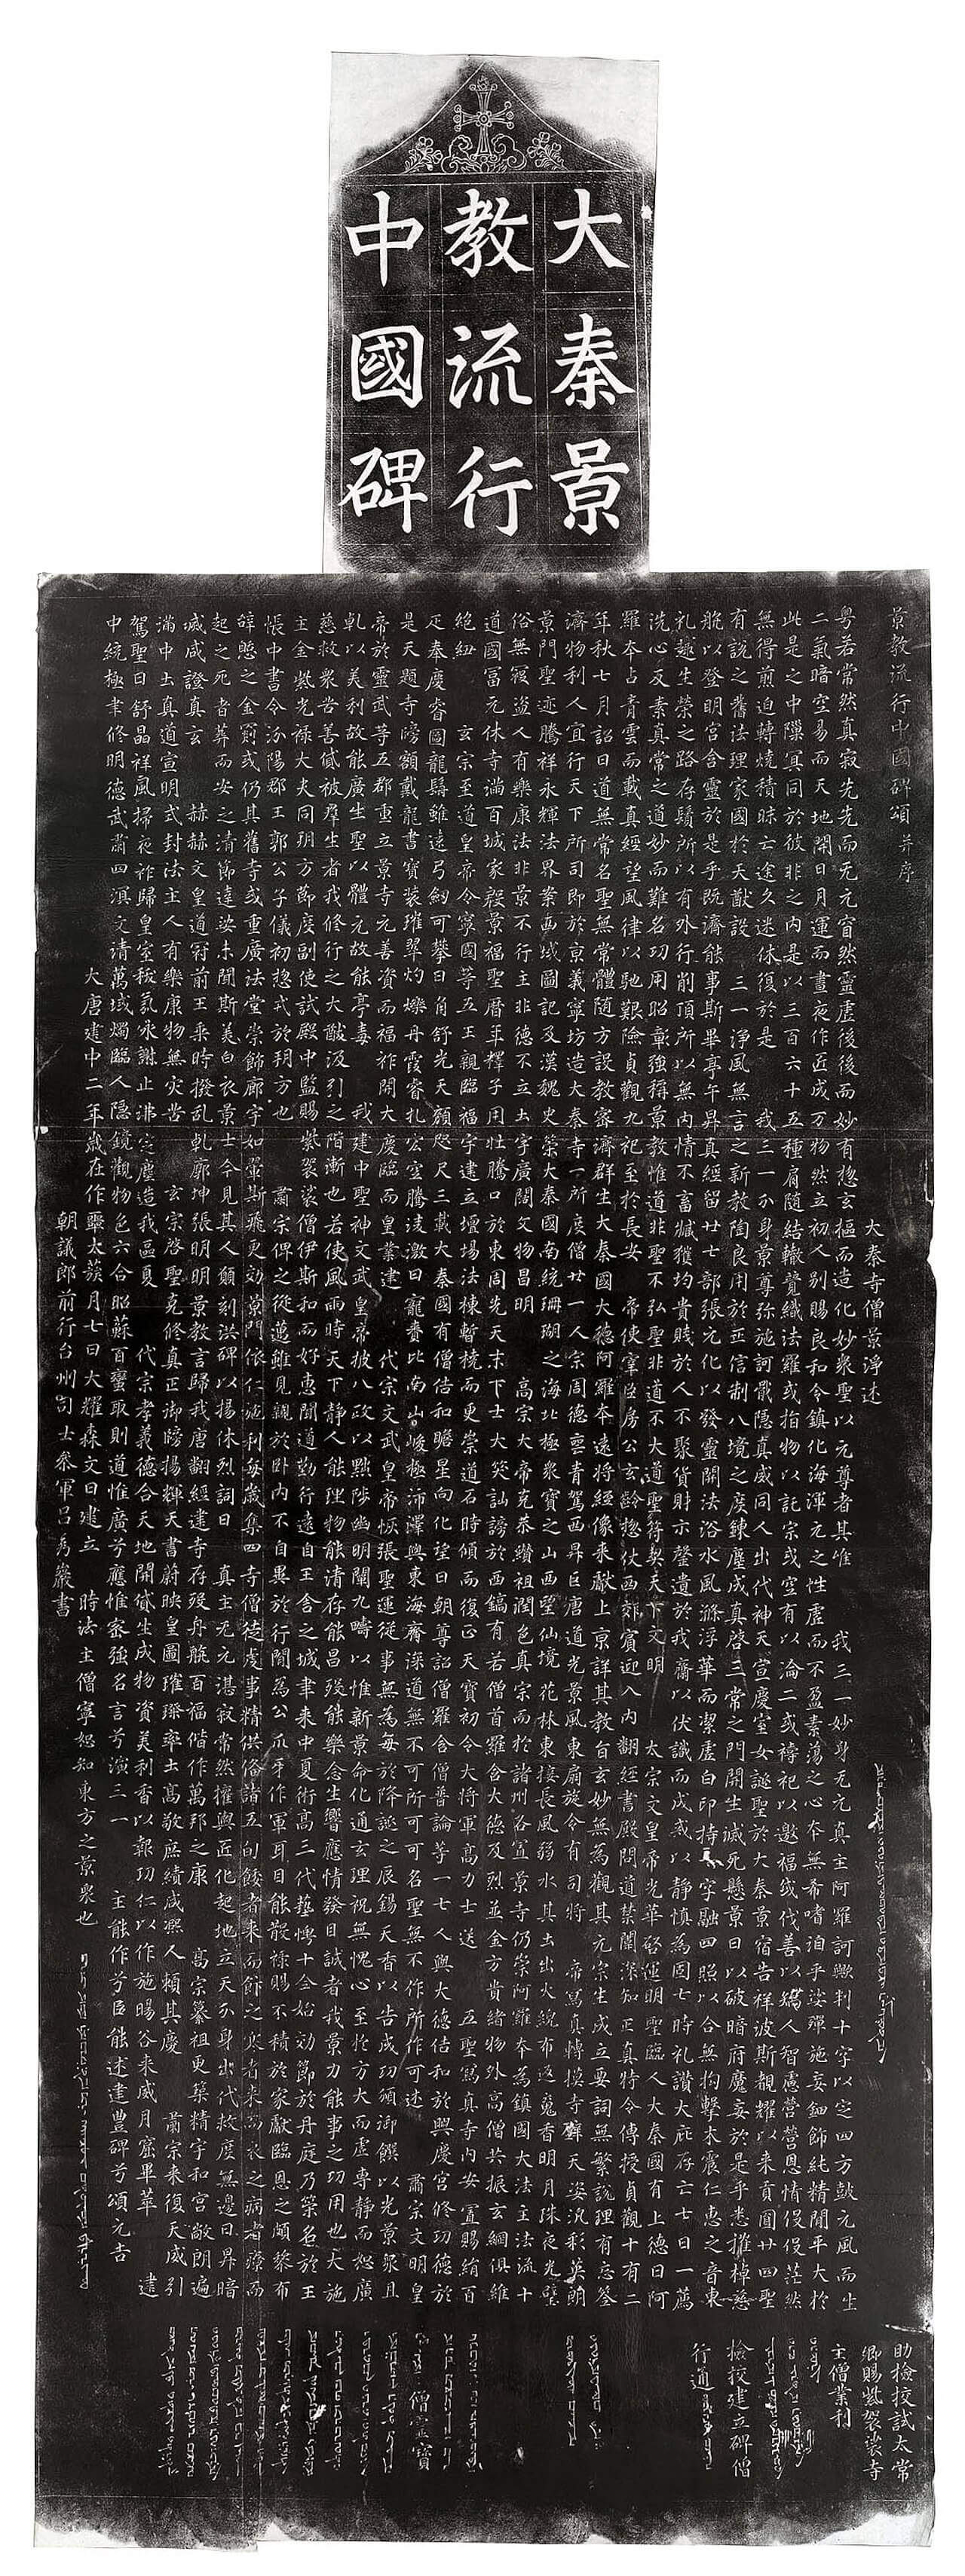 大秦景
教流行
中國碑
景教流行中國碑頌 并序
大秦寺僧景淨述
粵若常然真寂先先而无元窅然靈虛後後而妙有惣玄樞而造化妙衆聖以元尊者其唯 我三一妙身无元真主阿羅訶歟判十字以定四方鼓元風而生
二氣暗空易而天地開日月運而晝夜作匠成万物然立初人别賜良和令鎮化海渾元之性虛而不盈素蕩之心本無希嗜洎乎娑殫施妄鈿飾純精閒平大於
此是之中隟冥同於彼非之內是以三百六十五種肩隨結轍競織法羅或指物以託宗或空有以淪二或禱祀以邀福或伐善以矯人智慮營營恩情伇伇茫然
無得煎迫轉燒積昧亡途久迷休復於是 我三一分身景尊弥施訶戢隱真威同人出代神天宣慶室女誕聖於大秦景宿告祥波斯覩耀以來貢圓廿四聖
有說之舊法理家國於大猷設 三一淨風無言之新教陶良用於正信制八境之度鍊塵成真啓三常之門開生滅死懸景日以破暗府魔妄於是乎悉摧棹慈
航以登明宮含靈於是乎既濟能事斯畢亭午昇真經留廿七部張元化以發靈關法浴水風滌浮華而潔虛白印持十字融四照以合無拘擊木震仁惠之音東
礼趣生榮之路存鬚所以有外行削頂所以無內情不畜臧獲均貴賤於人不聚貨財示罄遺於我齋以伏識而成戒以靜慎為固七時礼讚大庇存亡七日一薦
洗心反素真常之道妙而難名功用昭彰強稱景教惟道非聖不弘聖非道不大道聖符契天下文明 太宗文皇帝光華啓運明聖臨人大秦國有上德曰阿
羅本占青雲而載真經望風律以馳艱險貞觀九祀至於長安 帝使宰臣房公玄齡惣仗西郊賓迎入內翻經書殿問道禁闈深知正真特令傳授貞觀十有二
年秋七月詔曰道無常名聖無常體隨方設教密濟群生大秦國大德阿羅本遠將經像來獻上京詳其教旨玄妙無為觀其元宗生成立要詞無繁說理有忘筌
濟物利人宜行天下所司即於京義寧坊造大秦寺一所度僧廿一人宗周德喪青駕西昇巨唐道光景風東扇旋令有司將 帝寫真轉摸寺壁天姿汎彩英朗
景門聖迹騰祥永輝法界案西域圖記及漢魏史策大秦國南統珊瑚之海北極衆寶之山西望仙境花林東接長風弱水其土出火綄布返魂香明月珠夜光璧
俗無寇盜人有樂康法非景不行主非德不立土宇廣闊文物昌明 高宗大帝克恭纘祖潤色真宗而於諸州各置景寺仍崇阿羅本為鎮國大法主法流十
道國冨元休寺滿百城家殷景福聖曆年釋子用壯騰口於東周先天末下士大笑訕謗於西鎬有若僧首羅含大德及烈並金方貴緒物外高僧共振玄網俱維
絕紐 玄宗至道皇帝令寧國等五王親臨福宇建立壇場法棟暫橈而更崇道石時傾而復正天寶初令大將軍高力士送 五聖寫真寺內安置賜絹百
疋奉慶睿圖龍髯雖遠弓劒可攀日角舒光天顏咫尺三載大秦國有僧佶和瞻星向化望日朝尊詔僧羅含僧普論等一七人與大德佶和於興慶宮修功德於
是天題寺牓額戴龍書寶裝璀翠灼爍丹霞睿扎宏空騰淩激日寵賚比南山峻極沛澤與東海齊深道無不可所可可名聖無不作所作可述 肅宗文明皇
帝於靈武等五郡重立景寺元善資而福祚開大慶臨而皇業建 代宗文武皇帝恢張聖運從事無為每於降誕之辰錫天香以告成功頒御饌以光景衆且
軋以美利故能廣生聖以體元故能亭毒 我建中聖神文武皇帝披八政以黜陟幽明闡九疇以惟新景命化通玄理祝無愧心至於方大而虛專靜而恕廣
慈救衆苦善貸被群生者我修行之大猷汲引之階漸也若使風雨時天下靜人能理物能清存能昌歿能樂念生響應情發目誠者我景力能事之功用也大施
主金紫光禄大夫同玥方節度副使試殿中監賜紫袈裟僧伊斯和而好惠聞道勤行遠自王舍之城聿來中夏術高三代藝博十全始効節於丹庭乃策名於王
帳中書令汾陽郡王郭公子儀初惣戎於玥方也 肅宗俾之從邁雖見親於卧內不自異於行間為公爪牙作軍耳目能散禄賜不積於家獻臨恩之頗黎布
辝憩之金罽或仍其舊寺或重廣法堂崇飾廊宇如翬斯飛更効景門依仁施利每歲集四寺僧徒虔事精供俻諸五旬餧者來而飰之寒者來而衣之病者療而
起之死者葬而安之清節達娑未聞斯美白衣景士今見其人願刻洪碑以揚休烈詞曰 真主无元湛寂常然權輿匠化起地立天分身出代救度無邊日昇暗
滅咸證真玄 赫赫文皇道冠前王乘時撥乱軋廓坤張明明景教言歸我唐翻經建寺存歿舟航百福偕作萬邦之康 高宗纂祖更築精宇和宮敞朗遍
滿中土真道宣明式封法主人有樂康物無灾苦 玄宗啓聖克修真正御牓揚輝天書蔚映皇圖璀璨率土高敬庶績咸熈人賴其慶 肅宗來復天威引
駕聖日舒晶祥風掃夜祚歸皇室秡氛永謝止沸定塵造我區夏 代宗孝義德合天地開貸生成物資美利香以報功仁以作施暘谷來威月窟畢萃 建
中統極聿修明德武肅四溟文清萬域燭臨人隱鏡觀物色六合昭蘇百蠻取則道惟廣兮應惟密強名言兮演三一 主能作兮臣能述建豐碑兮頌元吉
大唐建中二年歲在作噩太蔟月七日大耀森文日建立 時法主僧寧恕知東方之景衆也
朝議郎前行台州司士參軍吕秀巖書
助撿挍試太常
卿賜紫袈裟寺
主僧業利
撿挍建立碑僧
行通
僧靈寶